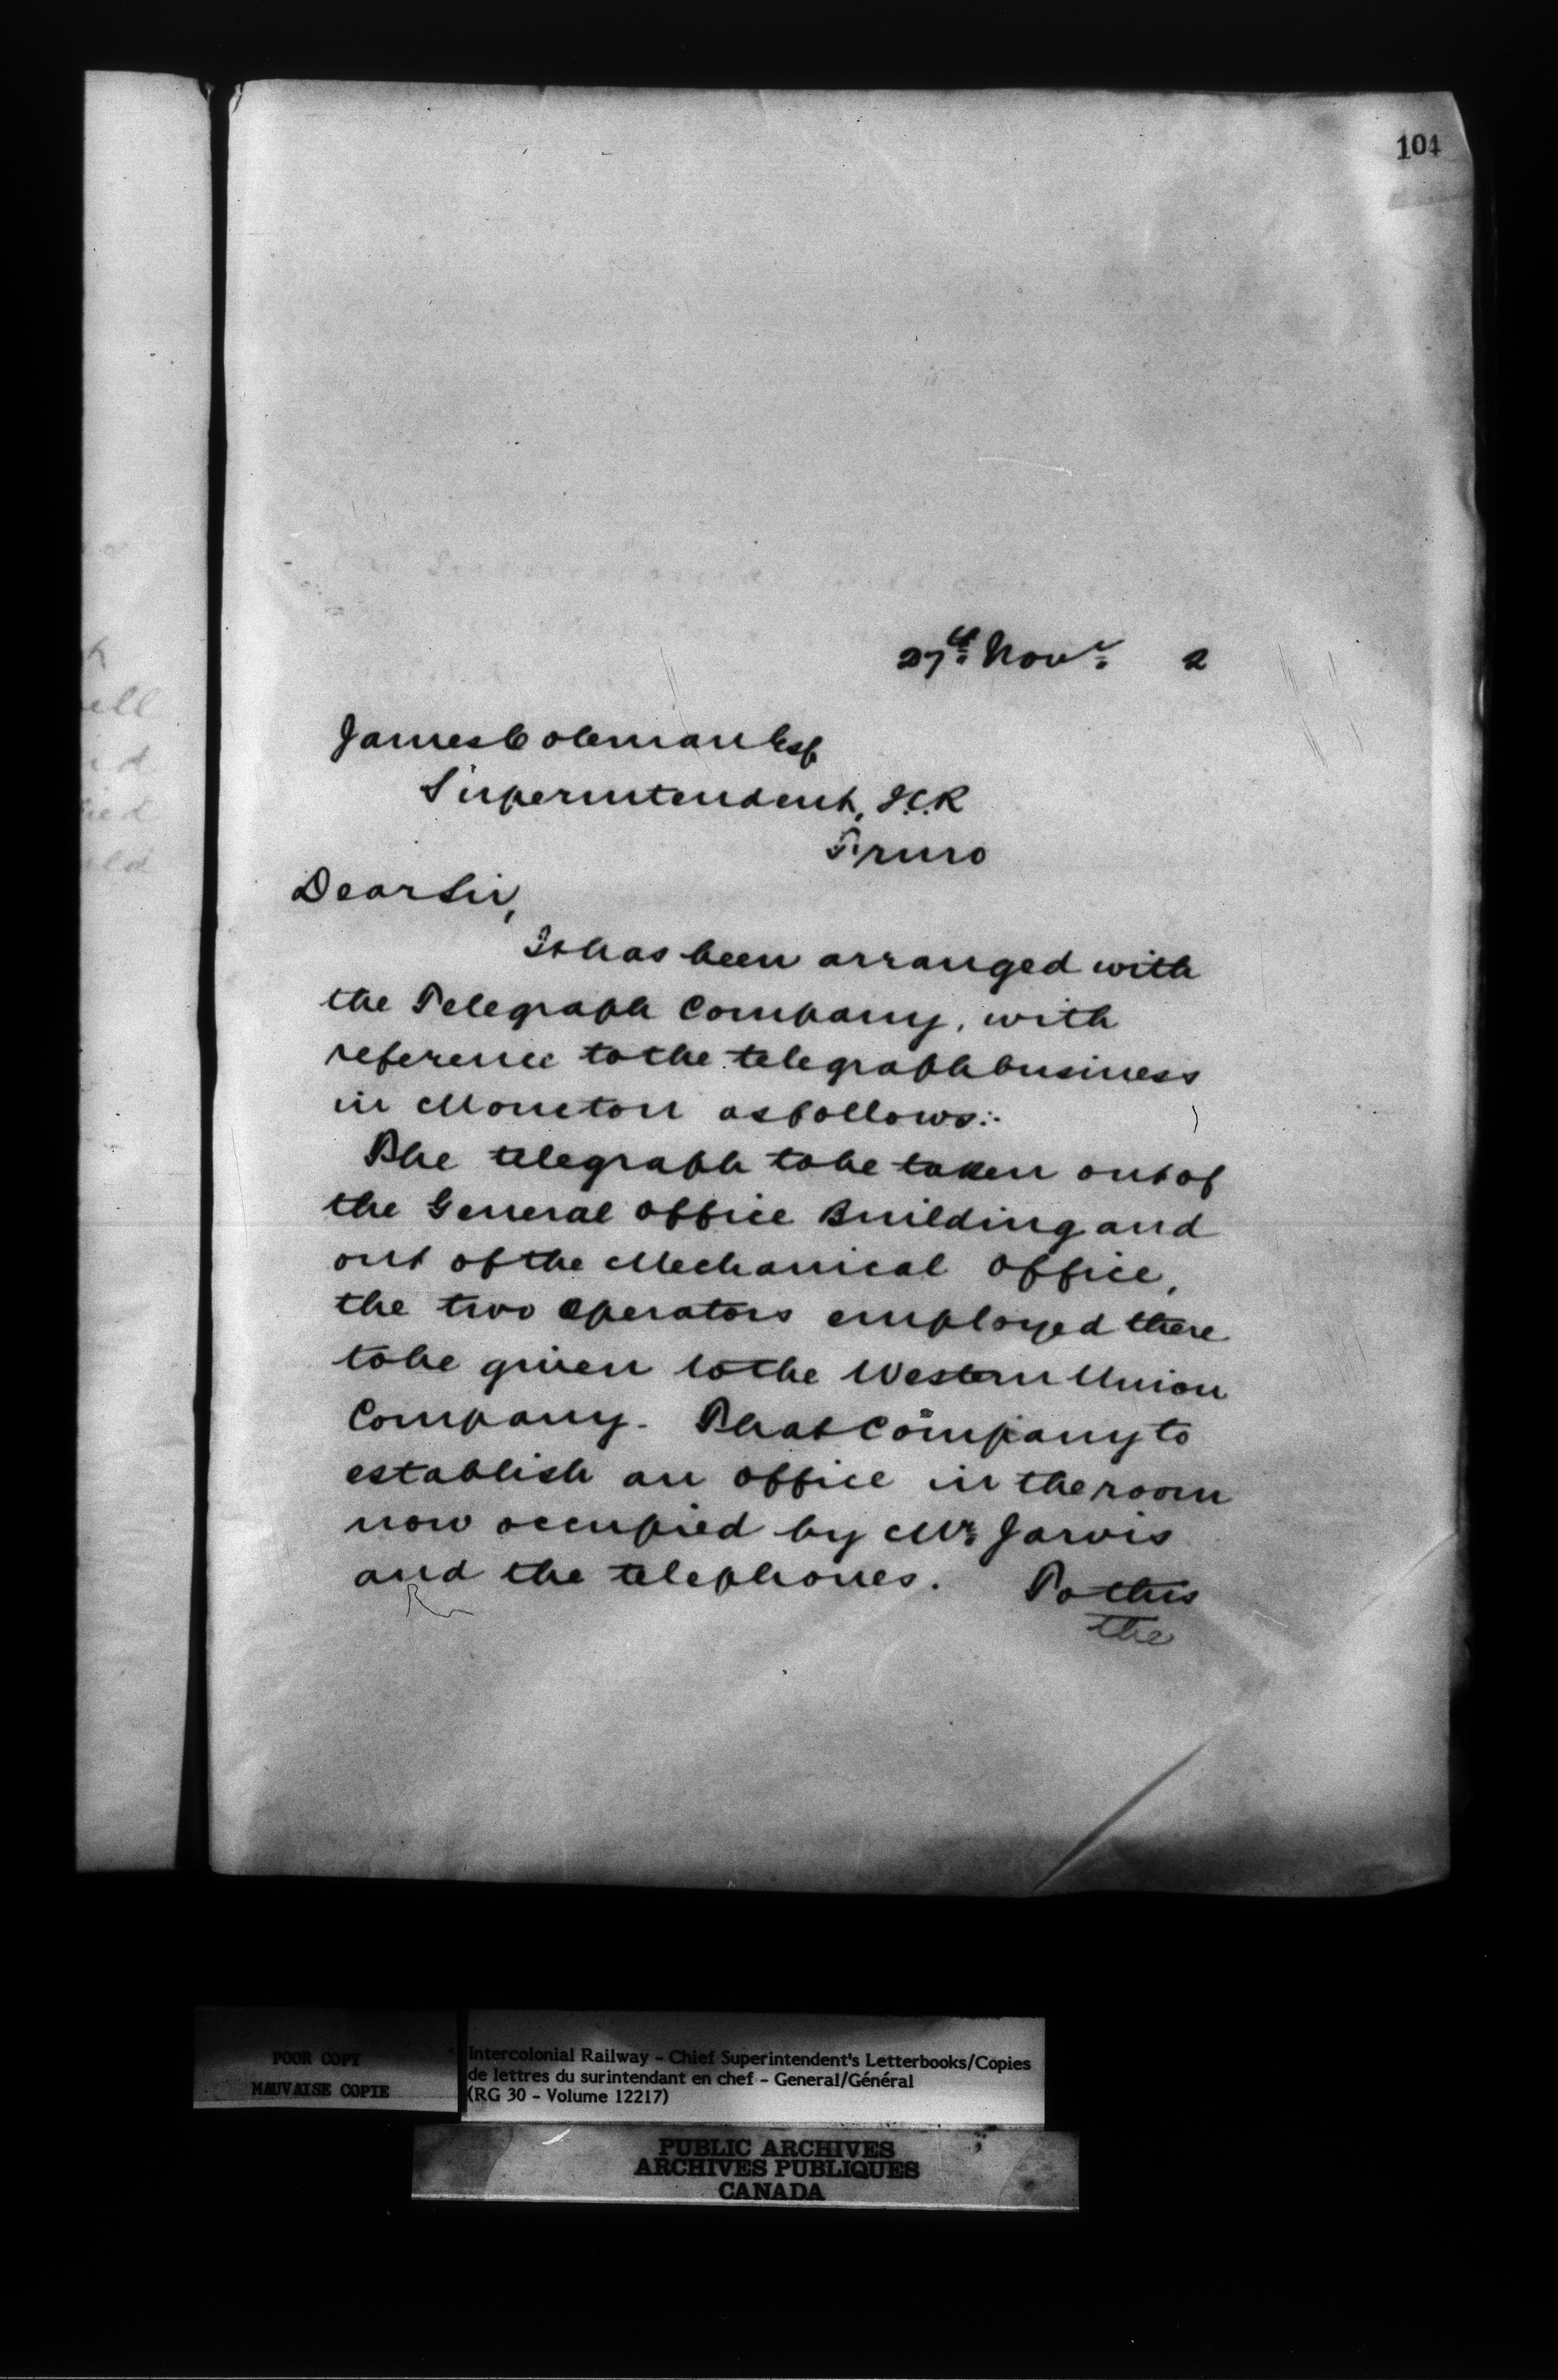 104
27th Novr 2
James Coleman Esq
Superintendent, I.C.R
Truro
Dear Sir,
It has been arranged with
the Telegraph Company, with
reference to the telegraph business
in Moncton as follows:-
The telegraph to be taken out of
the General Office Building and
out of the Mechanical Office,
the two Operators employed there
to be given to the Western Union
Company. That Company to
establish an office in the room
now occupied by Mr Jarvis
and the telephones. To this
the
ell
d
ied
ld
POOR COPY
MAUVAISE COPIE
Intercolonial Railway - Chief Superintendent's Letterbooks/Copies
de lettres du surintendant en chef - General/Général
(RG 30 - Volume 12217)
PUBLIC ARCHIVES
ARCHIVES PUBLIQUES
CANADA